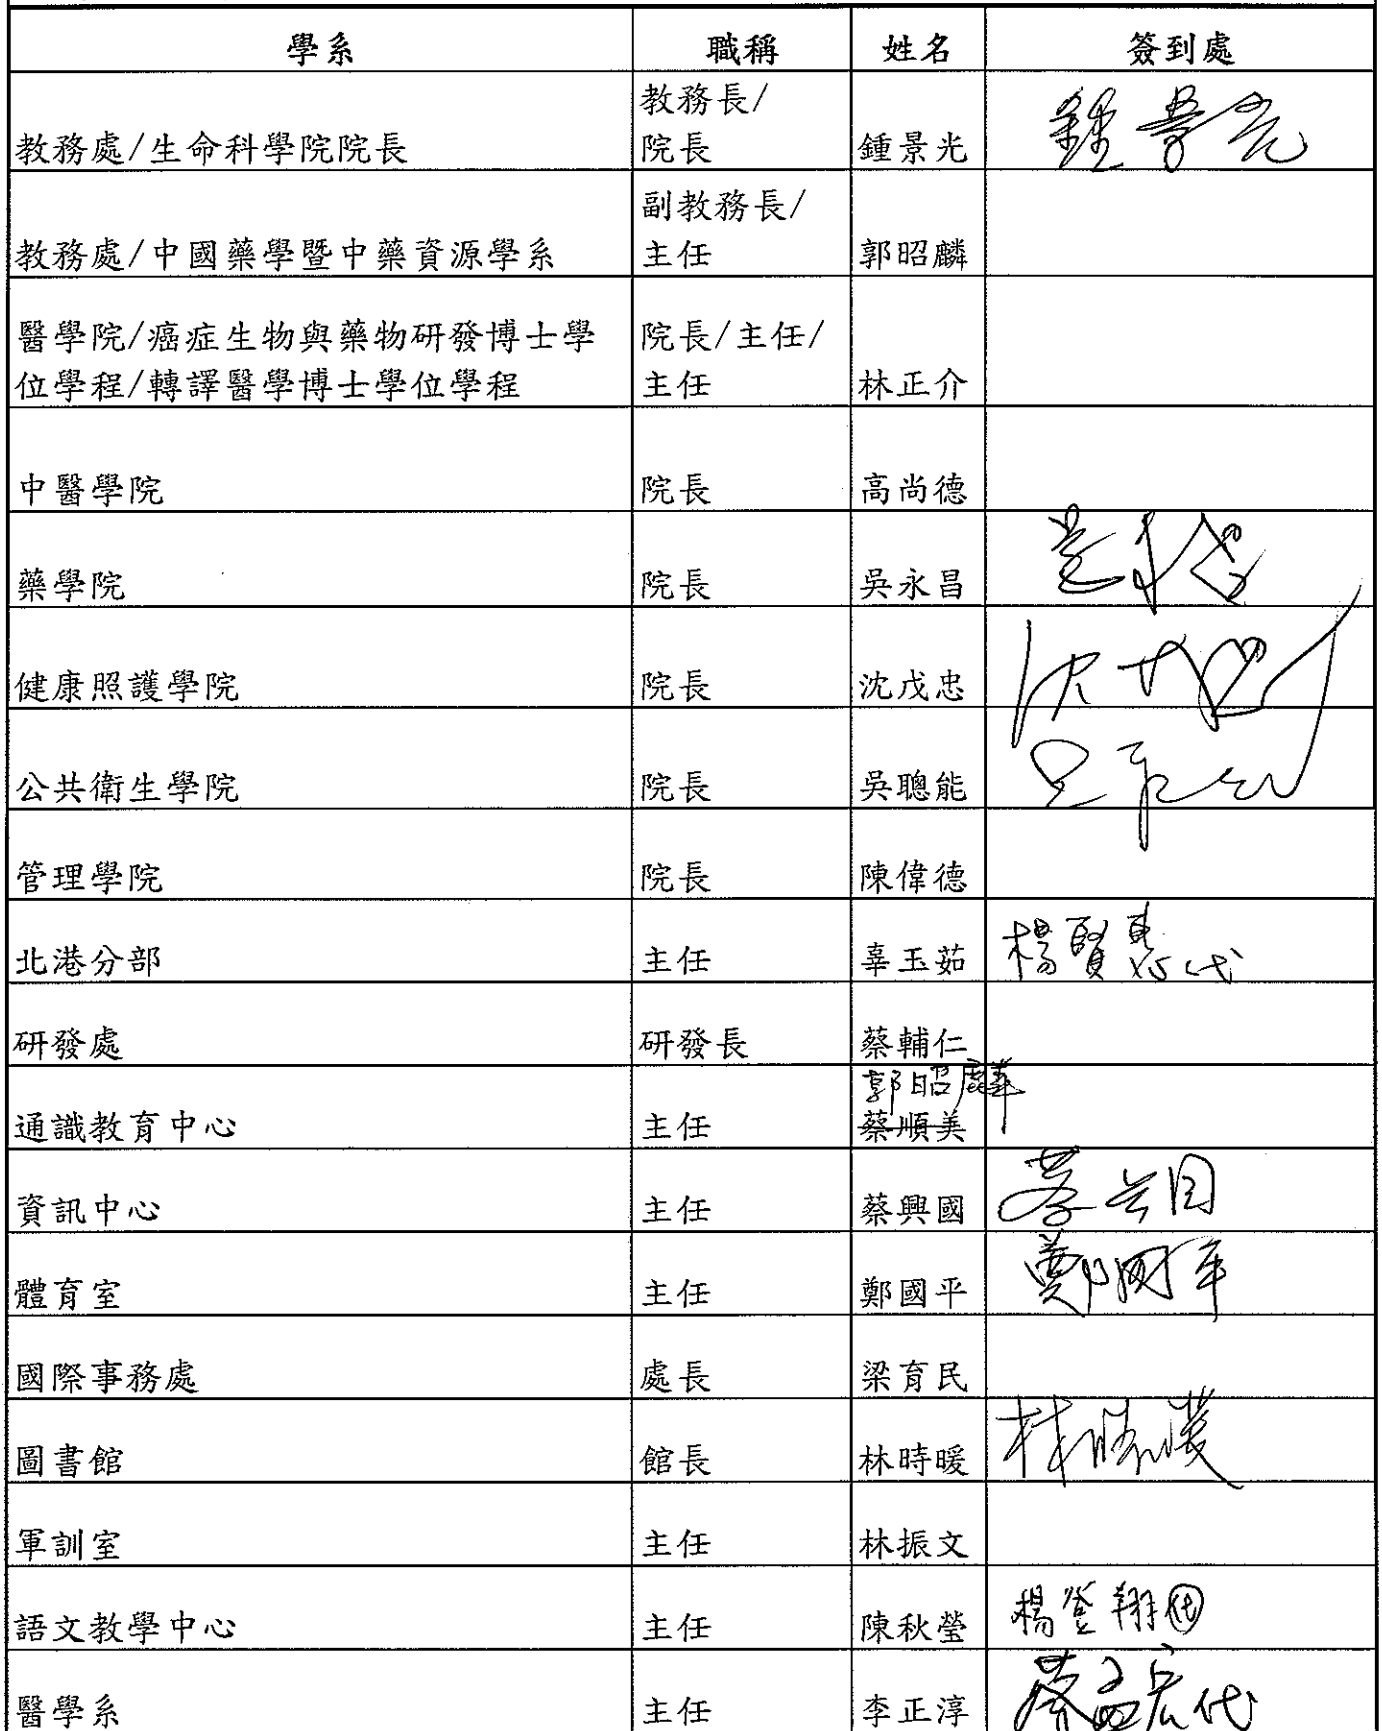 學系 職稱 姓名 簽到處
教務長/
教務處/生命科學院院長 院長 鍾景光 鍾景光
副教務長/
教務處/中國藥學暨中藥資源學系 主任 郭昭麟
醫學院/癌症生物與藥物研發博士學 院長/主任/
位學程/轉譯醫學博士學位學程 主任 林正介
中醫學院 院長 高尚德
藥學院 院長 吳永昌
健康照護學院 院長 沈戊忠 沈戊忠
公共衛生學院 院長 吳聰能
管理學院 院長 陳偉德
北港分部 主任 辜玉茹 楊賢惠代
研發處 研發長 蔡輔仁
郭昭麟
通識教育中心 主任 蔡順美
資訊中心 主任 蔡興國 蔡兴国
體育室 主任 鄭國平 鄭國平
國際事務處 處長 梁育民
圖書館 館長 林時暖 林時暖
軍訓室 主任 林振文
語文教學中心 主任 陳秋瑩 楊登翔代
醫學系 主任 李正淳 蔡孟宏代